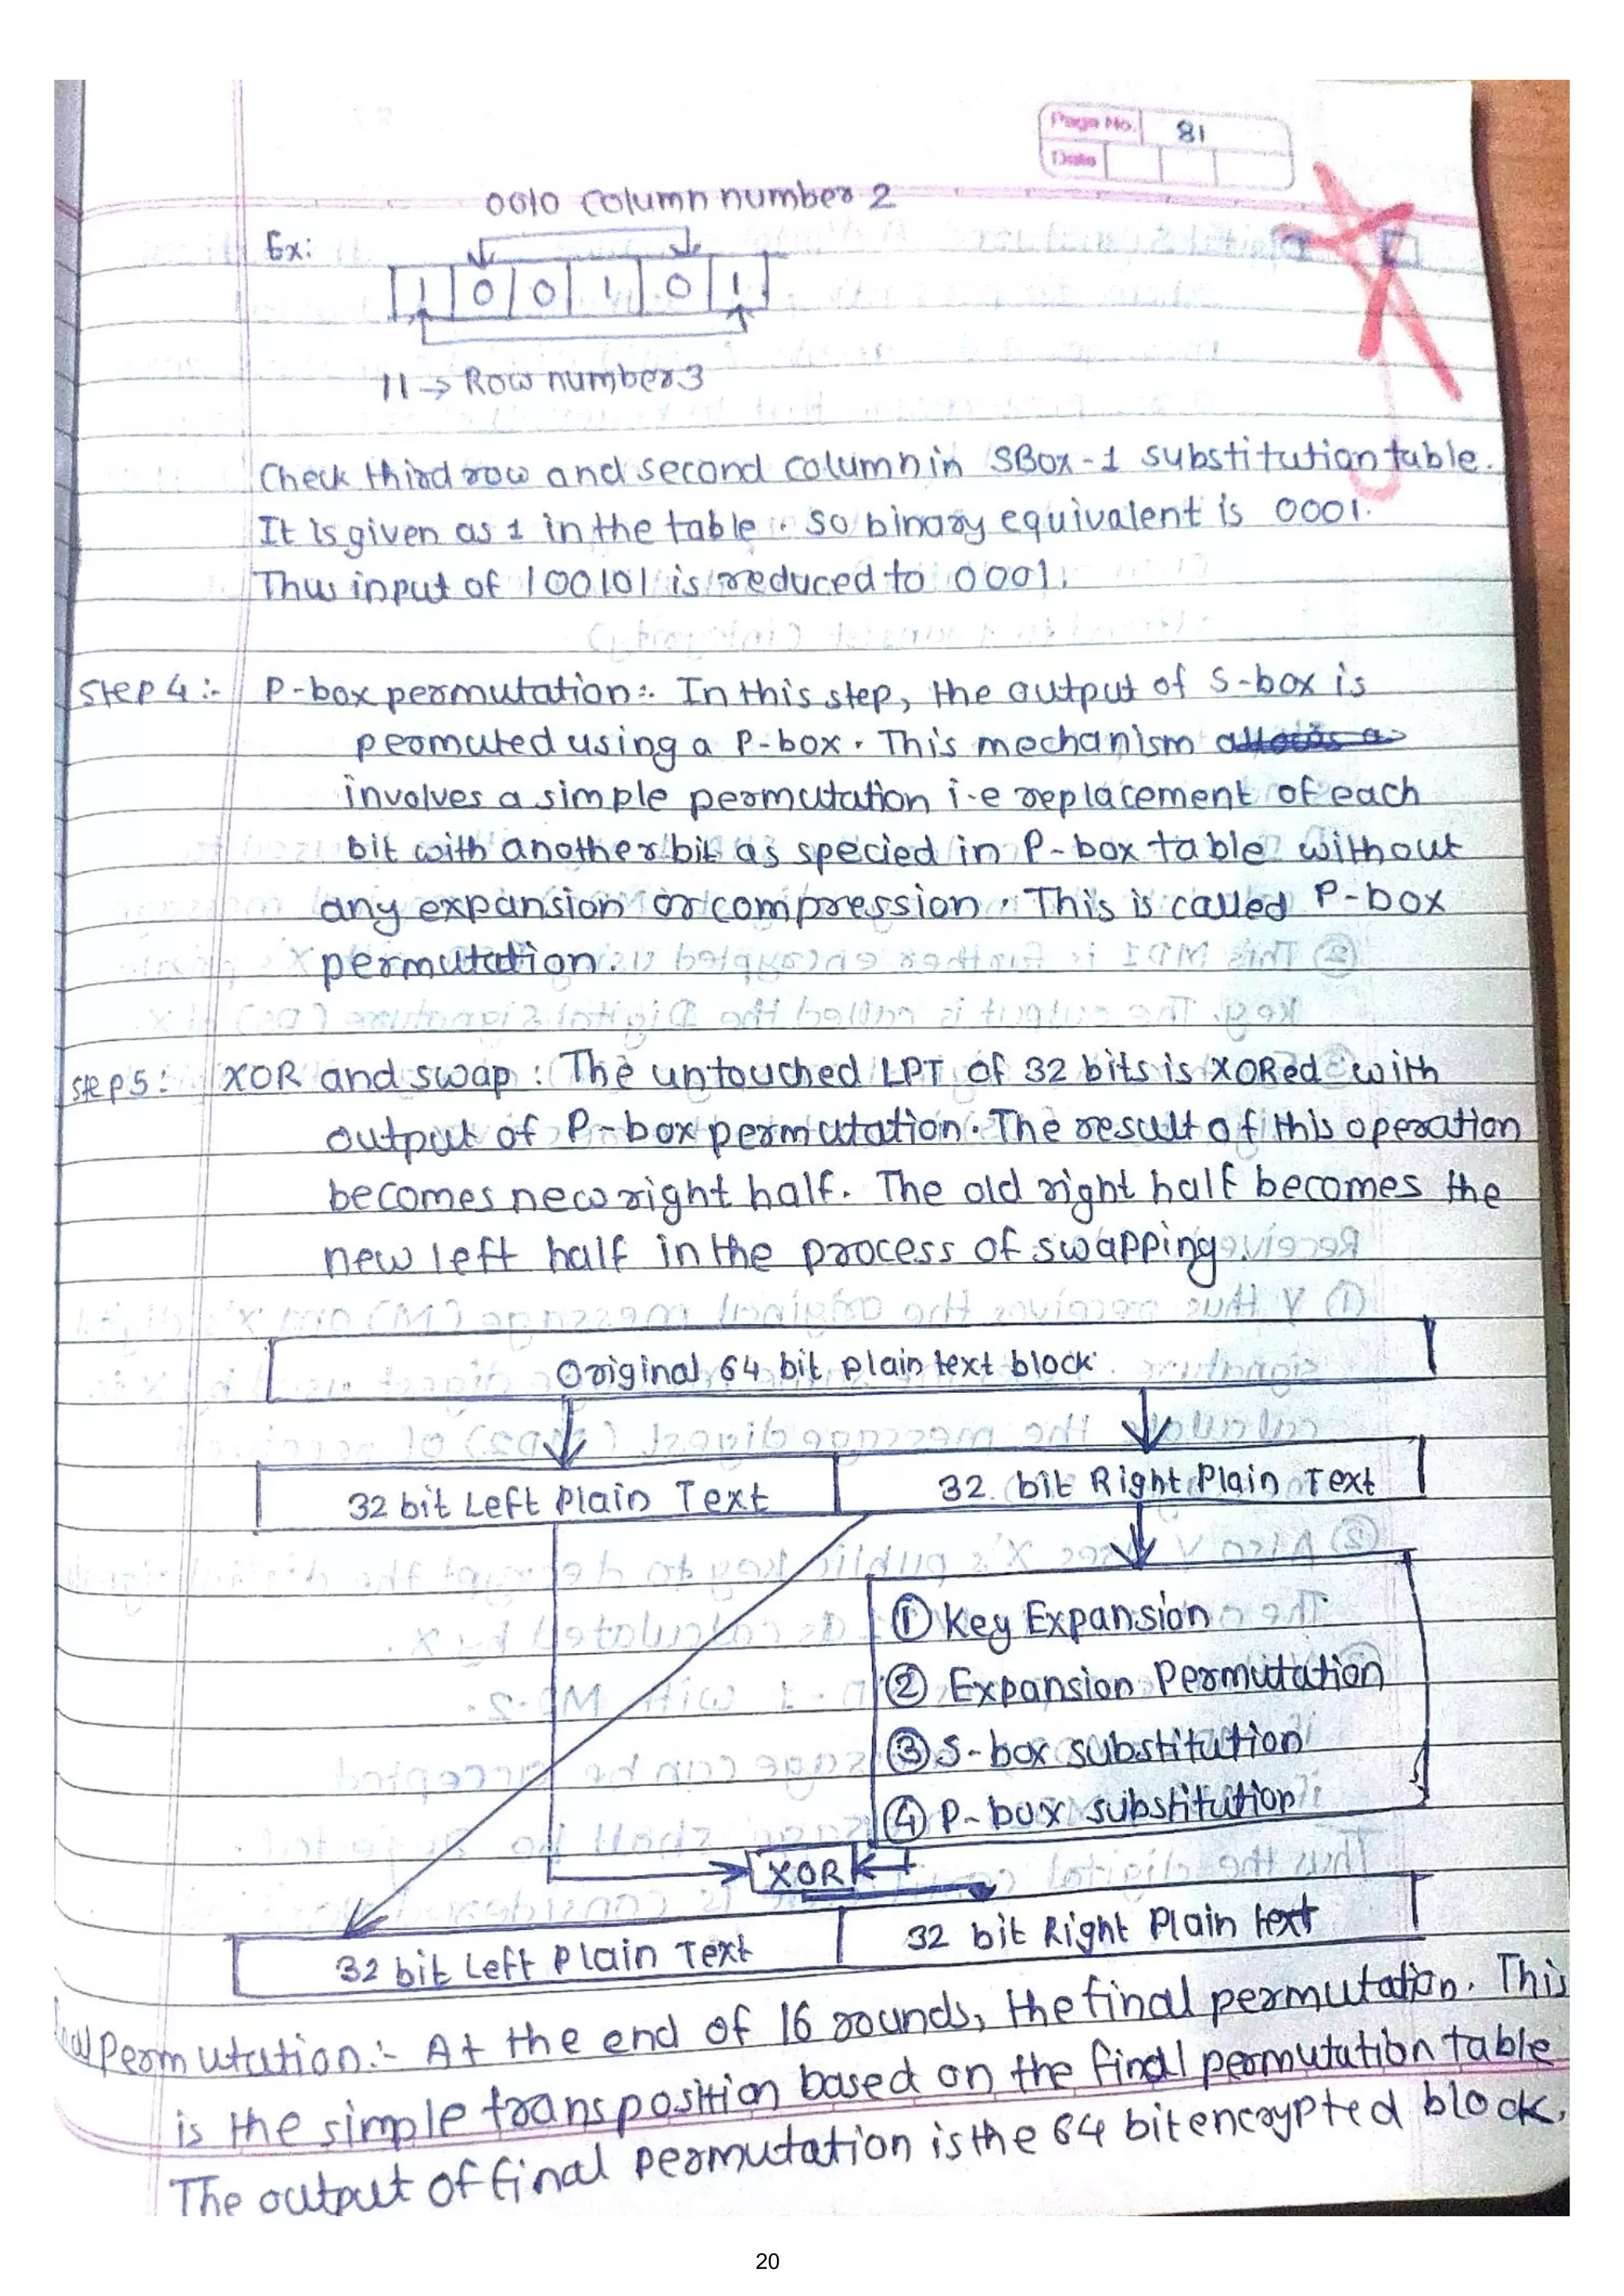 Page No. 81
Date
0010 column number 2
Ex:
1 0 0 1 0 1
11 → Row number 3
Check third row and second column in SBox-1 substitution table.
It is given as 1 in the table. So binary equivalent is 0001.
Thus input of 100101 is reduced to 0001.
Step 4:- P-box permutation:- In this step, the output of S-box is
permuted using a P-box. This mechanism
involves a simple permutation i.e replacement of each
bit with another bit as specied in P-box table without
any expansion or compression. This is called P-box
permutation.
Step 5: XOR and swap: The untouched LPT of 32 bits is XORed with
output of P-box permutation. The result of this operation
becomes new right half. The old right half becomes the
new left half in the process of swapping.
Original 64 bit plain text block
32 bit Left Plain Text 32 bit Right Plain Text
① Key Expansion
② Expansion Permutation
③ S-box substitution
④ P-box substitution
XOR
32 bit Left Plain Text 32 bit Right Plain text
Permutation:- At the end of 16 rounds, the final permutation. This
is the simple transposition based on the final permutation table
The output of final permutation is the 64 bit encrypted block.
20